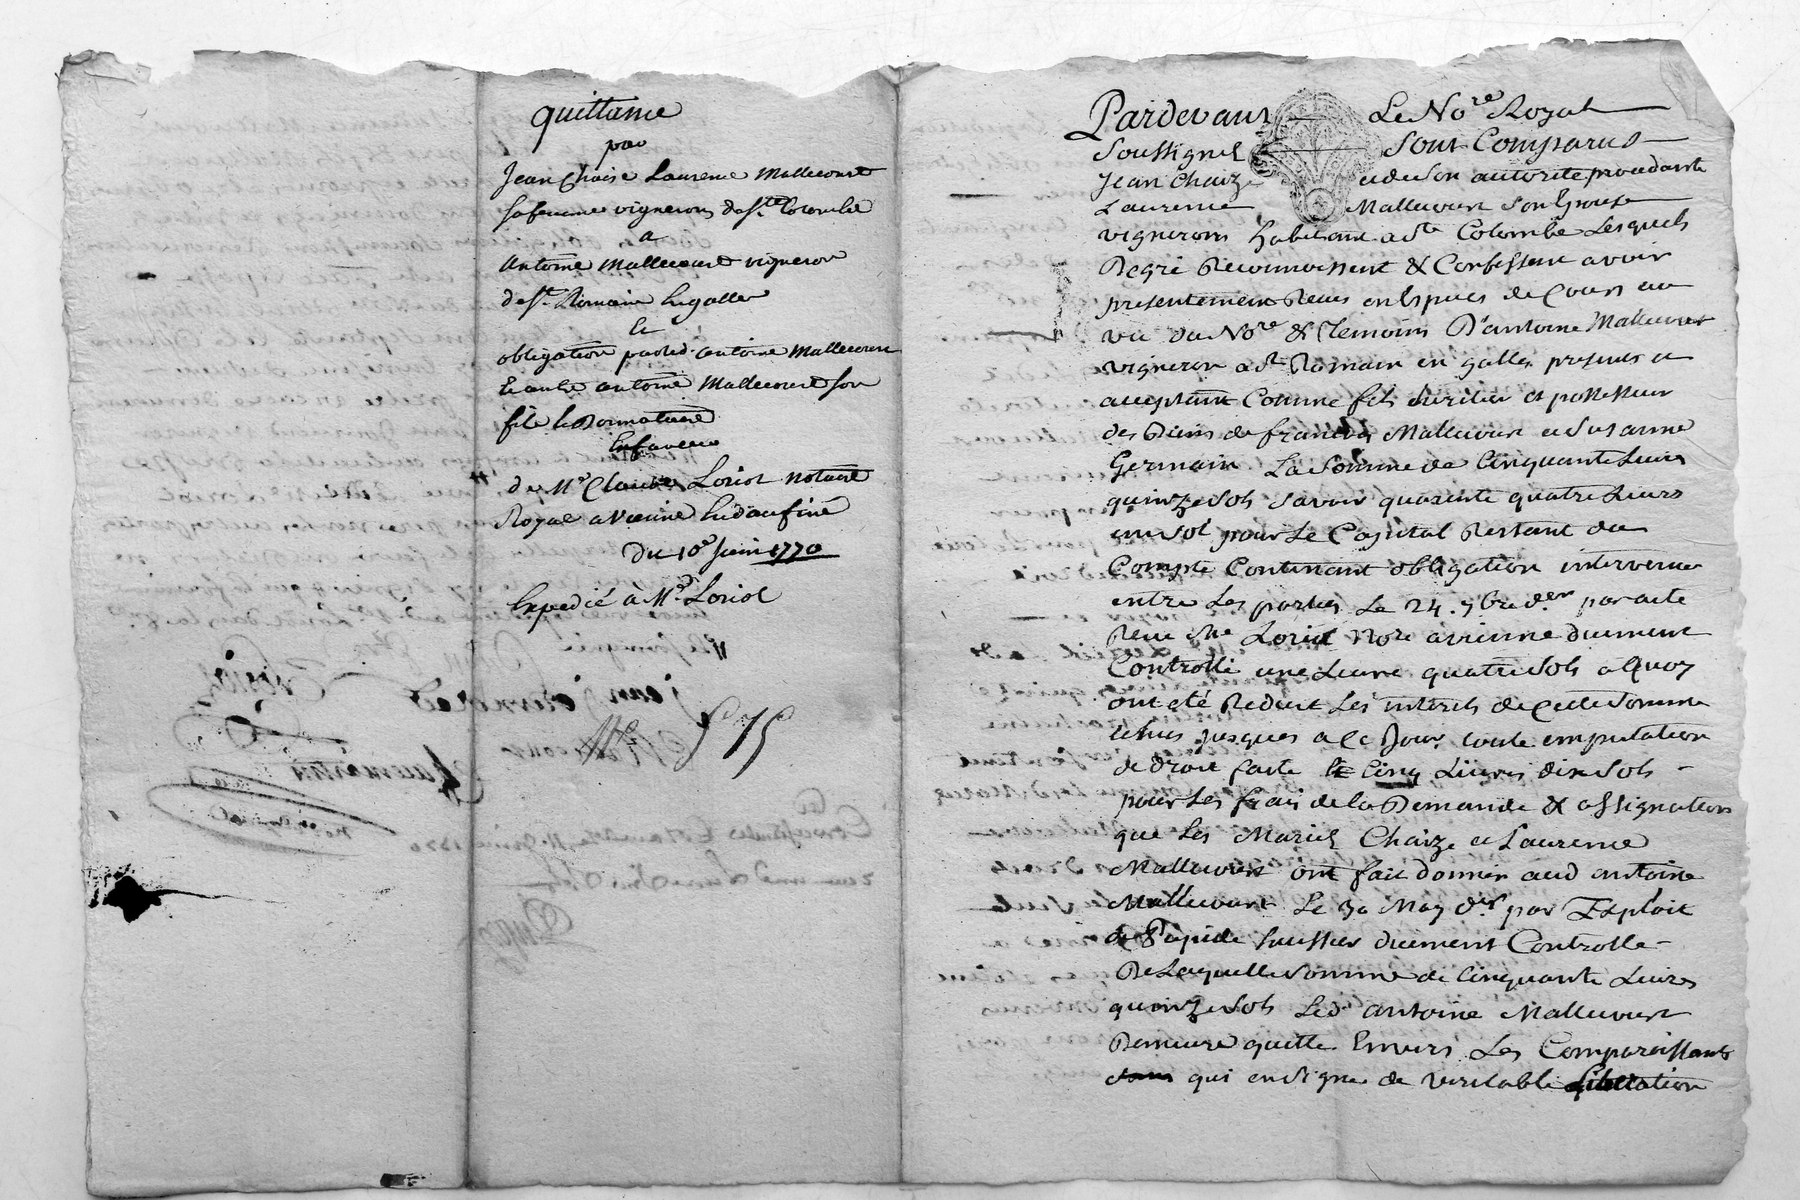 quittance
par
Jean Chaise Laurence Mallecourt
sa femme vignerons de Ste Colombe
a
Antoine Mallecourt vigneron
de St. Romain
Et
obligation par led. antoine Mallecourt
Et autre antoine Mallecourt son
fils
En faveur
de Mr Claude Loriot notaire
Royal a Vienne
Du 10e Juin 1770
Expedié a Mr Loriot
Pardevant Le Nore Royal
Soussigné Sont Comparus
Jean Chaize et de son autorité procedante
Laurence Mallecourt son Epouse
vignerons habitant a Ste Colombe Lesquels
De gré Reconnoissent & Confessent avoir
presentement Receu en Espaces de Cours au
vu du Nore & temoins D'antoine Mallecourt
vigneron a St Romain en galles present et
acceptant Comme fils heritier et possesseur
des Biens de francois Mallecourt et Susanne
Germain La Somme de Cinquante Livres
quinze Sols Savoir quarente quatre Livres
un Sol pour Le Capital Restant du
Compte Contenant obligation intervenue
entre Les parties Le 24. 7bre der par acte
Receu Me Loriot Nore a vienne duement
Controllé une Livre quatre Sols a Quoy
ont eté Reduit Les interets de Cette Somme
echus jusques a Ce Jour, toute imputation
de droit faite & Cinq Livres dix Sols
pour Les frais de la Demande & assignation
que Les Mariés Chaize et Laurence
Mallecourt ont fait donner aud antoine
Mallecourt Le 30 May der par Exploit
de huissier duement Controllé
De Laquelle Somme de Cinquante Livres
quinze Sols Led. antoine Mallecourt
Demeure quitte Envers Les Comparoissants
qui en Signe de veritable Liberation